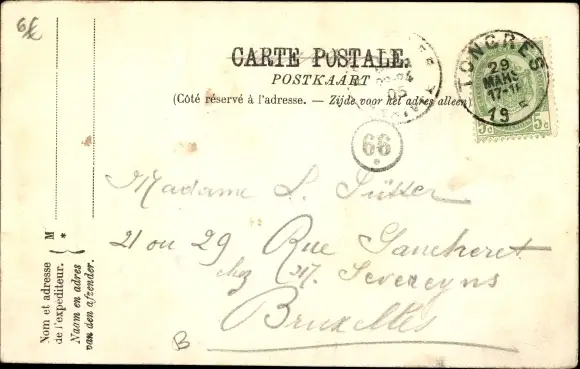 6
CARTE POSTALE.
POSTKAART
(Côté réservé à l'adresse. — Zijde voor het adres alleen)
TONGRES
29
MARS
17-
19
5c 5c
05
66
Madame L.
21 ou 29 Rue Gaucheret
chez M. Severeyns
Bruxelles
B
M
*
Nom et adresse
de l'expediteur.
Naam en adres
van den afzender.